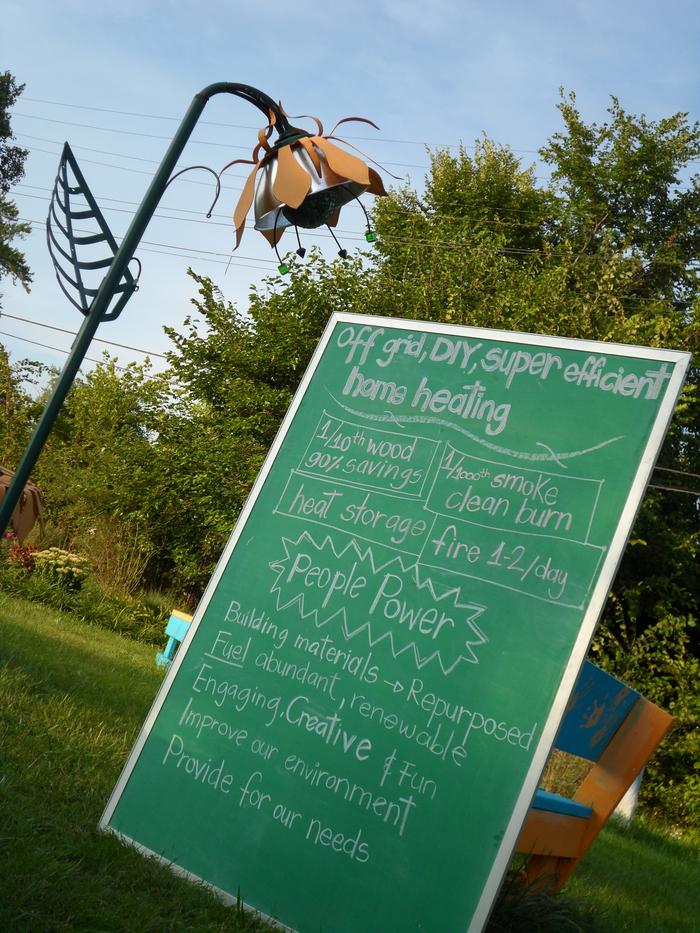 Off grid, DIY, super efficient
home heating
1/10th wood
90% savings
1/1000th smoke
clean burn
heat storage
fire 1-2/day
People Power
Building materials → Repurposed
Fuel abundant, renewable
Engaging, Creative & Fun
Improve our environment
Provide for our needs